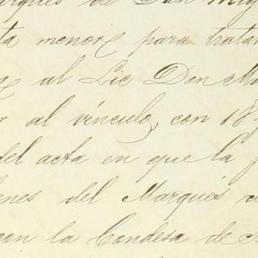 arqués de San Mig
ta menor para tratar
al Lic Don M
r al vínculo, con 18
del acta en que la
enes del Marqués
con la Condesa de